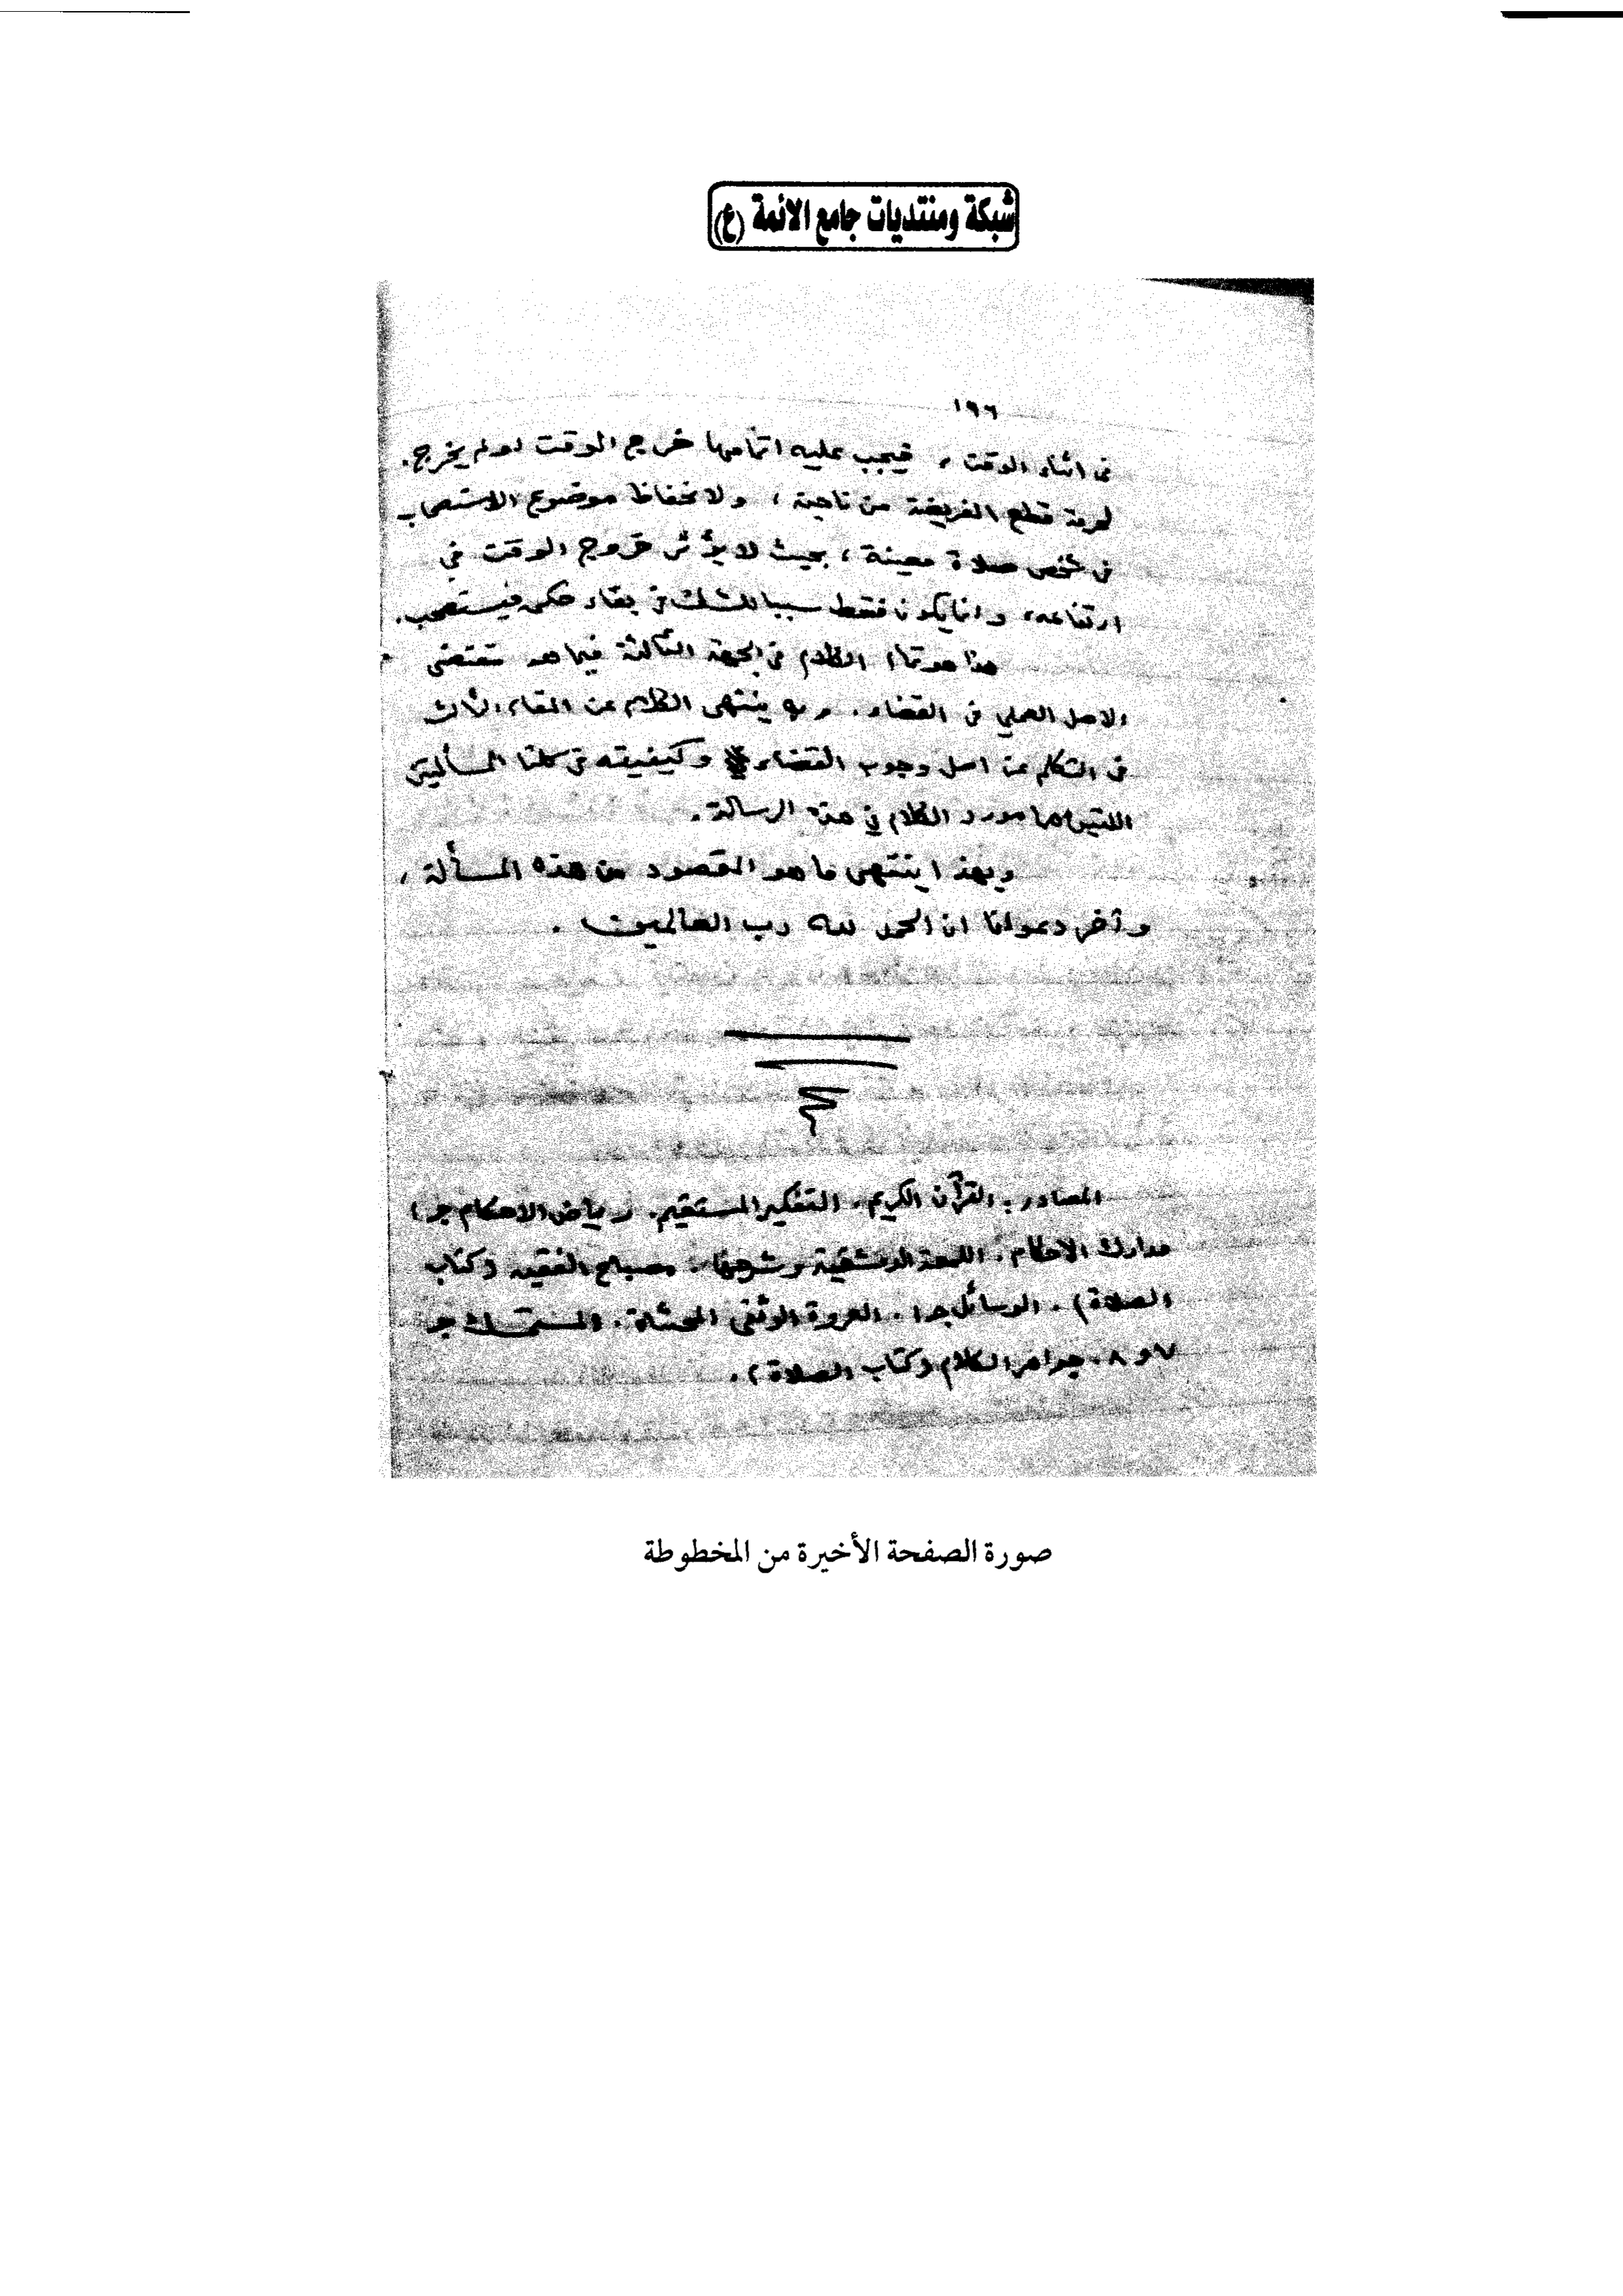 شبكة ومنتديات جامع الائمة (ع)
١٩٦
في اثناء الوقت ، فيجب عليه اتمامها خرج الوقت او لم يخرج.
لحرمة قطع الفريضة من ناحية ، ولانحفاظ موضوع الاستصحاب
في شخص صلاة معينة ، بحيث لا يؤثر خروج الوقت في
ارتفاعه، وانما يكون فقط سببا للشك في بقاء حكمه فيستصحب.
هذا هو تمام الكلام في الجهة الثالثة فيما هو مقتضى
الاصل العملي في القضاء. وبه ينتهى الكلام عن المقام الثالث
في التكلم عن اصل وجوب القضاء وكيفيته في كلتا المسألتين
اللتين هما مورد الكلام في هذه الرسالة.
وبهذا ينتهى ما هو المقصود من هذه المسألة ،
وآخر دعوانا ان الحمد لله رب العالمين .
المصادر : القرآن الكريم. التفكير المستقيم. رياض الاحكام جـ ١
مدارك الاحكام. اللمعة الدمشقية وشرحها. مصباح الفقيه (كتاب
الصلاة) . الوسائل جـ ١ . العروة الوثقى المحشاة. المستمسك جـ
٧ و ٨ . جواهر الكلام (كتاب الصلاة) .
صورة الصفحة الأخيرة من المخطوطة